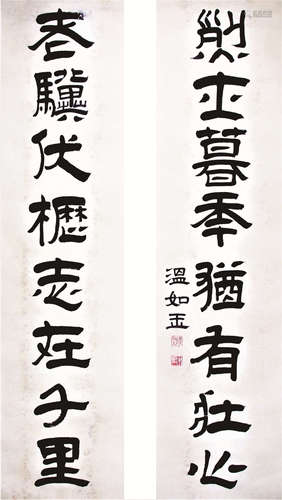 老驥伏櫪志在千里
烈士暮年猶有壯心
溫如玉